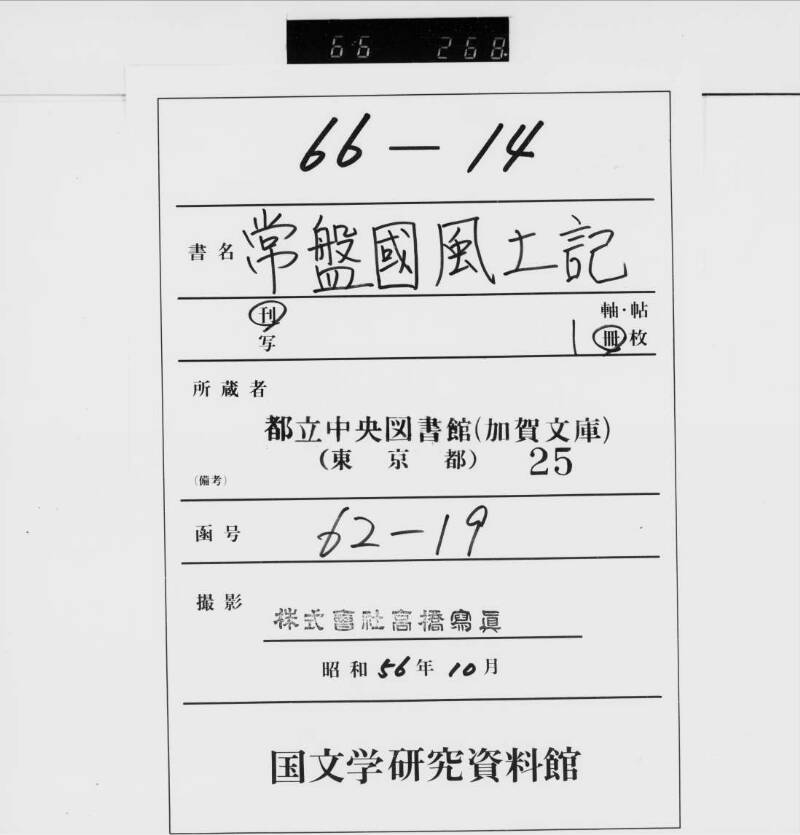 66 268
66－14
書名 常盤國風土記
刊 軸・帖
写 1 冊 枚
所蔵者
都立中央図書館(加賀文庫)
(東京都) 25
(備考)
函号 62－19
撮影 株式會社高橋寫眞
昭和56年10月
国文学研究資料館